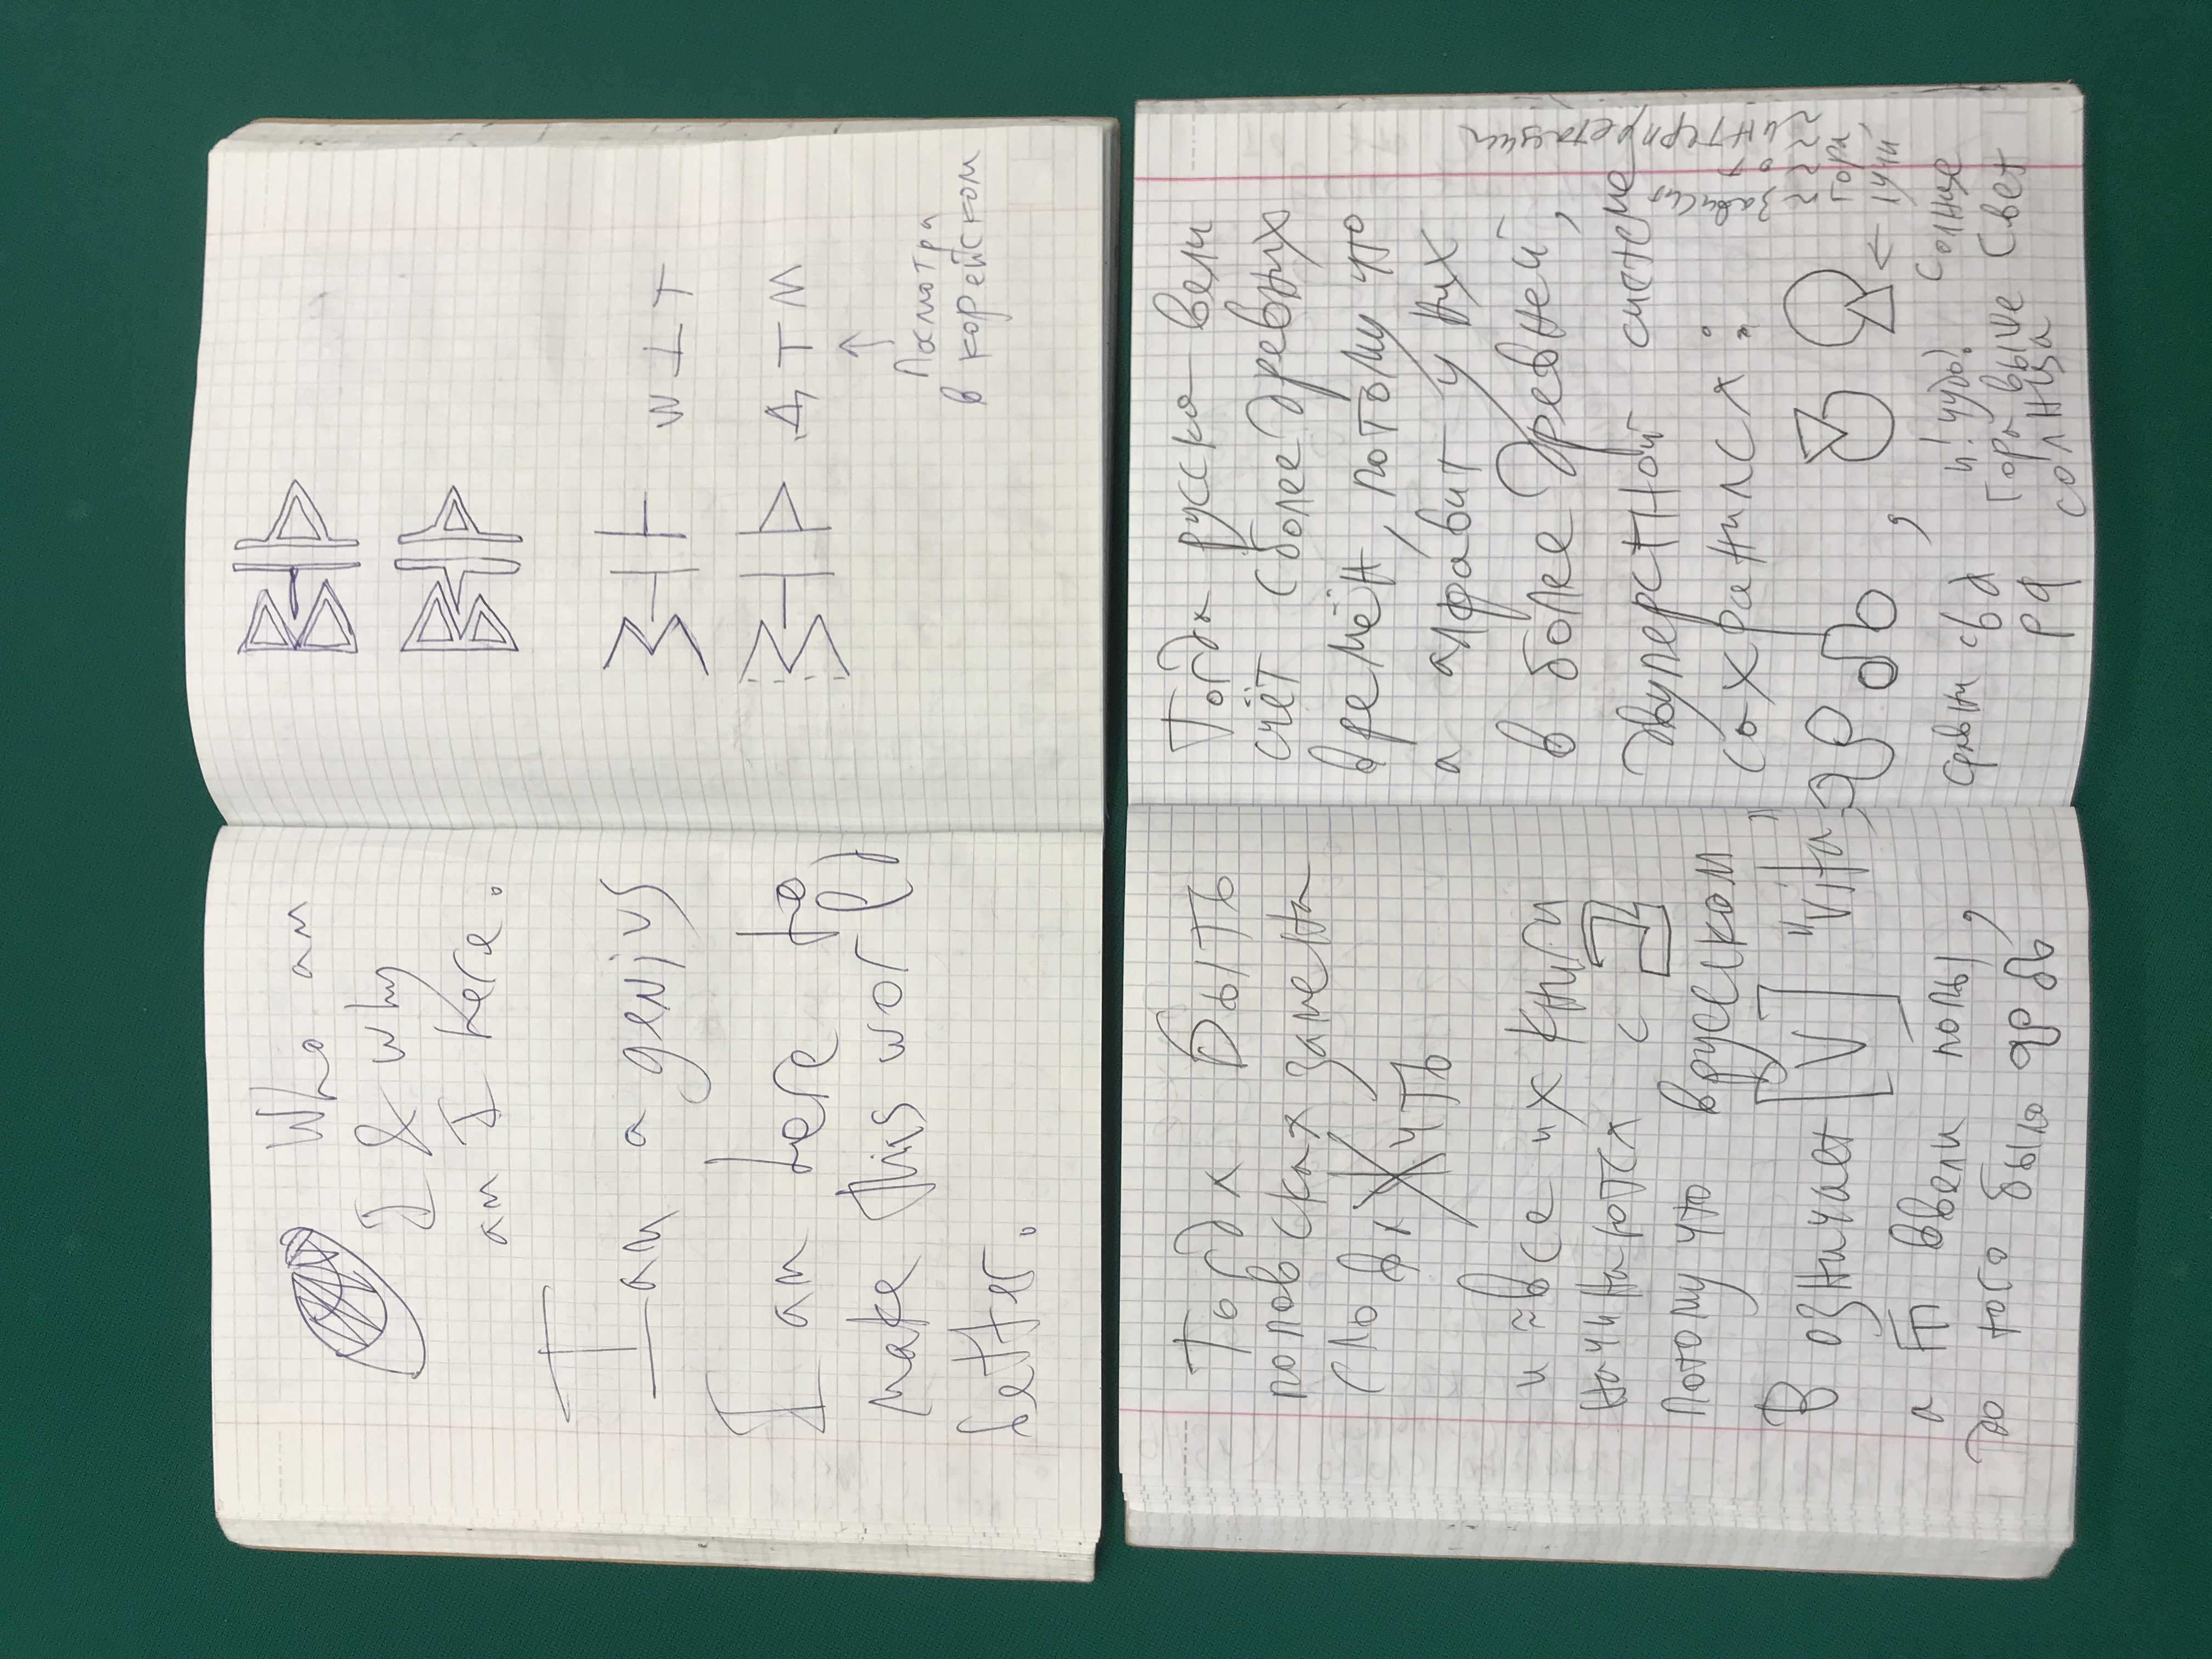 Who am
I & why
am I here.
I am a genius
I am here to
make this world
better.
ВНР
ВНР
W I T
Д Т М
↑
Посмотра
в корейском
Тогда Быть
поповская замена
слова Жить
и ≈все их книги
начинаются с
потому что в русском
В означает [V] "vita"
а ввели попы,
до того было
Тогда русска вели
счёт с более древних
времён, потому что
а алфавит у них
в более древней,
двуперстной системе
сохранился:
,
Сравни с b d
p q
и! чудо!
Гора выше
солнца
Солнце
Свет
← лучи
гора
~ зависит
~ от
~ интерпретации